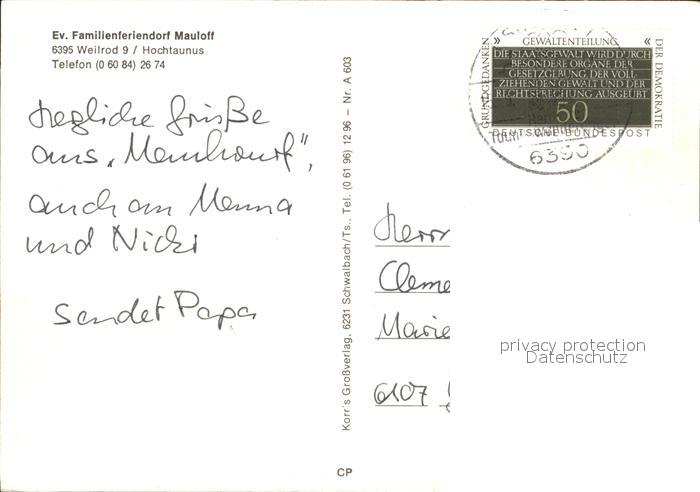 Ev. Familienferiendorf Mauloff
6395 Weilrod 9 / Hochtaunus
Telefon (0 60 84) 26 74
herzliche Grüße
aus „
auch an Mema
und Nicki
sendet Papa
Korr's Großverlag, 6231 Schwalbach/Ts., Tel. (0 61 96) 12 96 – Nr. A 603
CP
» GEWALTENTEILUNG «
GRUNDGEDANKEN
DER DEMOKRATIE
DIE STAATSGEWALT WIRD DURCH
BESONDERE ORGANE DER
GESETZGEBUNG, DER VOLL-
ZIEHENDEN GEWALT UND DER
RECHTSPRECHUNG AUSGEÜBT
50
DEUTSCHE BUNDESPOST
6390
Herrn
Cleme
Marie
6107
privacy protection
Datenschutz